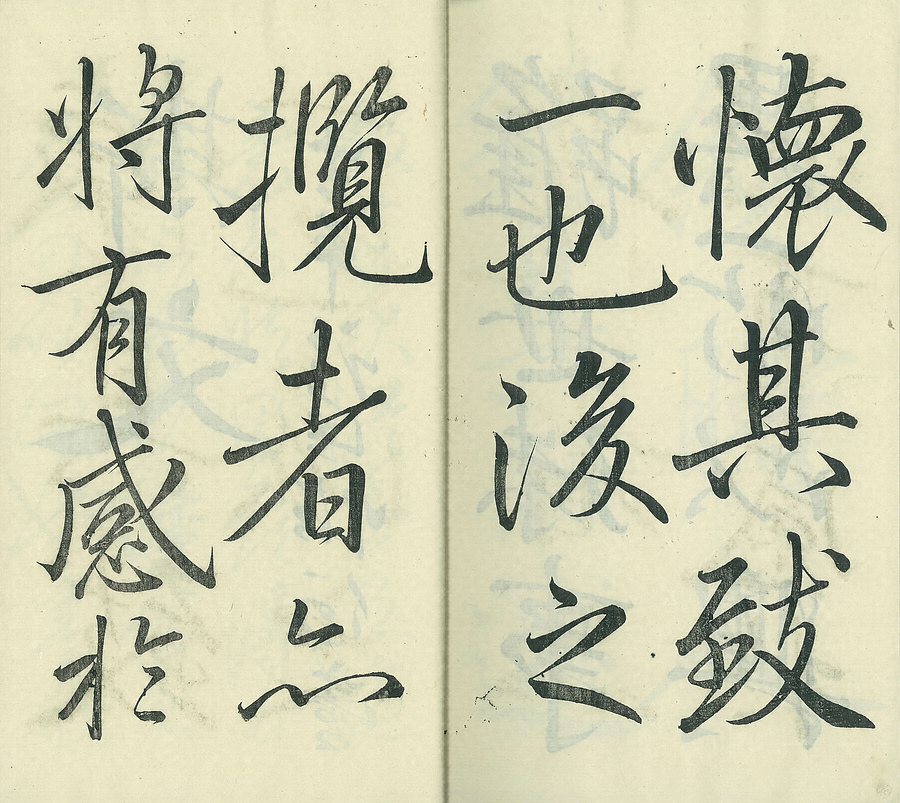 懐其致
一也後之
攬者亦
将有感於